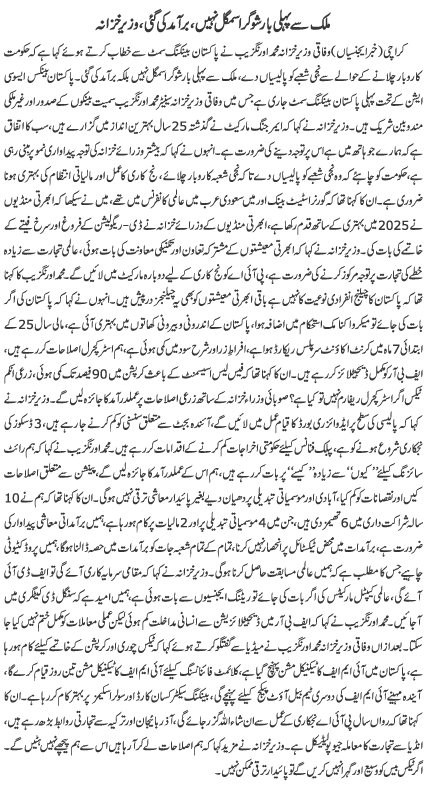 ملک سے پہلی بار شوگر اسمگل نہیں، برآمد کی گئی، وزیر خزانہ
کراچی (خبر ایجنسیاں) وفاقی وزیر خزانہ محمد اورنگزیب نے پاکستان بینکنگ سمٹ سے خطاب کرتے ہوئے کہا ہے کہ حکومت
کاروبار چلانے کے حوالے سے نجی شعبے کو پالیسیاں دے، ملک سے پہلی بار شوگر اسمگل نہیں بلکہ برآمد کی گئی۔ پاکستان بینکس ایسوسی
ایشن کے تحت پہلی پاکستان بینکنگ سمٹ جاری ہے جس میں وفاقی وزیر خزانہ سینیٹر محمد اورنگزیب سمیت بینکوں کے صدور اور غیر ملکی
مندوبین شریک ہیں۔ وزیر خزانہ نے کہا کہ ایمرجنگ مارکیٹ نے گذشتہ 25 سال بہترین انداز میں گزارے ہیں، سب کا اتفاق
ہے کہ ہمارے جو ہاتھ میں ہے اس پر توجہ دینے کی ضرورت ہے۔ انہوں نے کہا کہ بیشتر وزرائے خزانہ کی توجہ پیداواری نمو پر مبنی رہی
ہے، حکومت کو چاہئے کہ وہ نجی شعبے کو پالیسیاں دے تاکہ نجی شعبہ کاروبار چلائے، نجکاری کا عمل اور مالیاتی انتظام کی بہتری ہونا
ہے۔ ان کا کہنا تھا کہ گورنر اسٹیٹ بینک اور میں سعودی عرب میں عالمی کانفرنس میں تھے، میں نے سیکھا کہ ابھرتی منڈیوں
نے 2025 میں بہتری کے ساتھ قدم رکھا ہے، ابھرتی منڈیوں کے وزیر خزانہ نے ڈی-ریگولیشن کے فروغ اور سرخ فیتے کے
خاتمے کی بات کی۔ وزیر خزانہ نے کہا کہ ابھرتی معیشتوں کے مشترکہ تعاون اور تکنیکی معاونت کی بات ہوئی، عالمی تجارت سے زیادہ
خطے کی تجارت پر توجہ مرکوز کرنے کی ضرورت ہے، پی آئی اے کو نجکاری کے لیے دوبارہ مارکیٹ میں لائیں گے۔ محمد اورنگزیب کا کہنا
تھا کہ پاکستان کا چیلنج انفرادی نوعیت کا نہیں ہے باقی ابھرتی معیشتوں کو بھی یہ چیلنجز درپیش ہیں۔ انہوں نے کہا کہ پاکستان کی اگر
بات کی جائے تو میکرو اکنامک استحکام میں اضافہ ہوا، پاکستان کے اندرونی و بیرونی کھاتوں میں بہتری آئی ہے، مالی سال 25 کے
ابتدائی 7 ماہ میں کرنٹ اکاؤنٹ سرپلس ریکارڈ ہوا ہے، افراط زر اور شرح سود میں کمی ہوئی ہے، ہم اسٹرکچرل اصلاحات کر رہے ہیں،
ایف بی آر کو مکمل ڈیجیٹلائز کر رہے ہیں۔ ان کا کہنا تھا کہ فیس لیس اسیسمنٹ کے باعث کرپشن میں 90 فیصد تک کمی ہوئی، زرعی انکم
ٹیکس اگر اسٹرکچرل ریفارم نہیں تو کیا ہے؟ صوبائی وزراء خزانہ کے ساتھ زرعی ٹیکس پر عملدرآمد کا جائزہ لیں گے۔ وزیر خزانہ نے
کہا کہ ٹیکس پالیسی کی سطح پر ایڈوائزری بورڈ کا قیام عمل میں لائیں گے، آئندہ بجٹ سے متعلق سنسنی کو کم کرنے جا رہے ہیں، 3 ڈسکوز کی
نجکاری شروع ہونے کو ہے، پبلک فنانس کیلئے حکومتی اخراجات کم کرنے کے اقدامات کر رہے ہیں۔ محمد اورنگزیب نے کہا کہ ہم رائٹ
سائزنگ کیلئے ”کیوں“ سے زیادہ ”کیسے“ پر بات کر رہے ہیں، ہم اس کے عملدرآمد کا جائزہ لیں گے، پینشن سے متعلق اصلاحات
کیں اور نقصانات کو کم کیا، آبادی اور موسمیاتی تبدیلی پر دھیان دیے بغیر پائیدار معاشی ترقی نہیں ہوگی۔ ان کا کہنا تھا کہ ہم نے 10
سالہ شراکت داری میں 6 تھیمز دی ہیں، جن میں 4 موسمیاتی تبدیلی پر اور 2 مالیات پر کام ہو رہا ہے، ہمیں برآمداتی معاشی پیداوار کی
ضرورت ہے، برآمدات میں محض ٹیکسٹائل پر انحصار نہیں کرنا، تمام کے تمام شعبہ جات کو برآمدات میں حصہ ڈالنا ہوگا، ہمیں پروڈکٹیوٹی
چاہیے جس کا مطلب ہے کہ ہمیں عالمی مسابقت حاصل کرنا ہوگی۔ وزیر خزانہ نے کہا کہ مقامی سرمایہ کاری آئے گی تو ایف ڈی آئی
آئے گی، عالمی کیپٹل مارکیٹس کی اگر بات کی جائے تو ریٹنگ ایجنسیوں سے بات ہوئی ہے، ہمیں امید ہے کہ سنگل ڈی کیٹگری میں
آجائیں گے۔ محمد اورنگزیب نے کہا کہ ایف بی آر میں ڈیجیٹلائزیشن سے انسانی مداخلت کم ہوئی لیکن عملی معاملات کو مکمل ختم نہیں کیا جا
سکتا۔ بعد ازاں وفاقی وزیر خزانہ محمد اورنگزیب نے میڈیا سے گفتگو کرتے ہوئے کہا کہ ٹیکس چوری اور کرپشن کے خاتمے کیلئے کام ہو رہا
ہے، پاکستان میں آئی ایم ایف کا ٹیکنیکل مشن پہنچ گیا ہے، کلائمٹ فائنانسنگ کیلئے آئی ایم ایف کا ٹیکنیکل مشن تین روز قیام کرے گا،
آیندہ مہینے آئی ایم ایف کی دوسری ٹیم بیل آؤٹ پیکج کیلئے پہنچے گی، بینکنگ سیکٹر کسان کارڈ اور سولر اسکیمز پر بہتر کام کر رہا ہے۔ ان کا
کہنا تھا کہ رواں سال پی آئی اے نجکاری کے عمل سے ان شاء اللہ گزر جائے گی، آذربائیجان اور ترکیہ سے تجارتی روابط بڑھ رہے ہیں،
انڈیا سے تجارت کا معاملہ جیو پولیٹیکل ہے۔ وزیر خزانہ نے مزید کہا کہ ہم اصلاحات لے کر آ رہا ہیں اس سے ہم پیچھے نہیں ہٹیں گے۔
اگر ٹیکس بیس کو وسیع اور گہرا نہیں کریں گے تو پائیدار ترقی ممکن نہیں۔